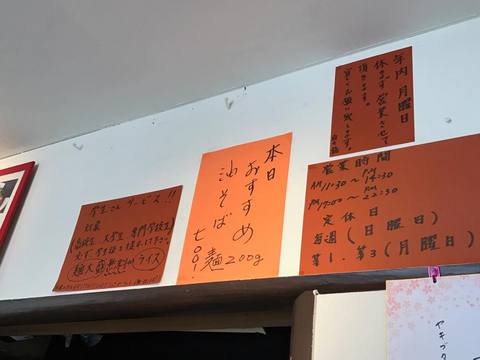 年内月曜日
休まず営業させて
頂きます。
営業時間
AM11:30〜PM14:30
PM17:00〜PM22:30
定休日
毎週(日曜日)
第1.第3(月曜日)
本日
おすすめ
油そば
麺200g
学生さんサービス!!
対象
(高校生 大学生 専門学校生)
麺大盛無料or ライス
ヤキブタ